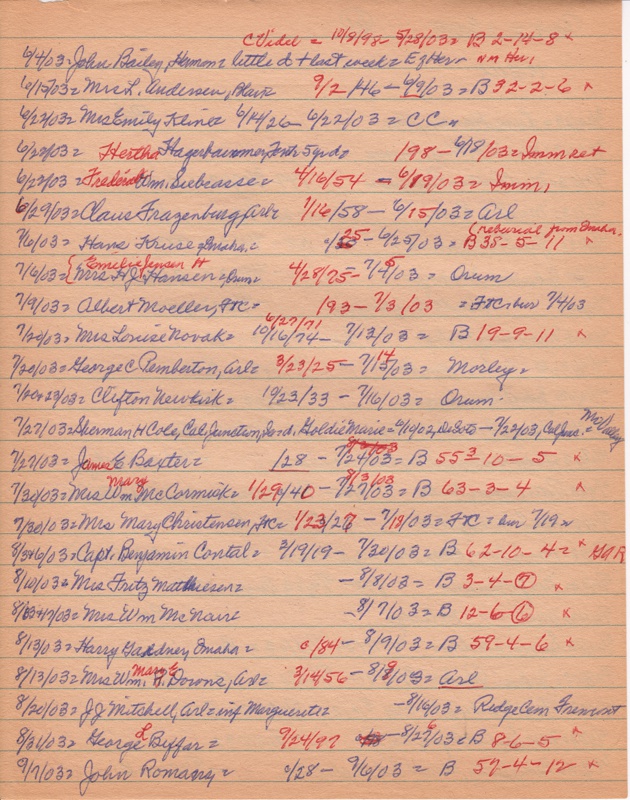 C Videl = 10/8/98 - 5/28/03 = B 2-14-8 x
6/4/03 = John Bailey, Hermon = little d + last week = Ez Her = NM Hill
6/15/03 = Mrs L. Andersen, Blair 9/2/46 - 6/9/03 = B 32-2-6 x
6/22/03 = Mrs Emily Keiner 6/14/26 - 6/22/03 = CC =
6/22/03 = Hertha Hagerbaummer, Fonta 5 yrd = 198 - 6/18/03 = Imm ret
6/22/03 = Frederick Wm. Siebrasse = 4/16/54 - 6/19/03 = Imm,
6/29/03 = Claus Frazenburg Arl = 7/16/58 - 6/15/03 = Arl
7/6/03 = Hans Kruse = Omaha, = c/25 - 6/25/03 = B 38-5-11 (reburial from Omaha. x
7/6/03 = { Emelie Jensen H Mrs H. J. Hansen = Orum = 4/28/75 - 7/5/03 = Orum
7/9/03 = Albert Moeller, FtC = 193 - 7/3/03 = FtC bur 7/4/03
7/20/03 = Mrs Louise Novak = 10/16/74 6/27/71 - 7/13/03 = B 19-9-11 x
7/20/03 = George C Pemberton, Arl = 3/23/25 - 7/14/03 = Morley =
7/20+23/03 = Clifton Newkirk = 1923/33 - 7/16/03 = Orum.
7/27/03 = Sherman H Cole, Cal Junction, Ia = d. Goldie Marie = 9/10/02, DeSoto - 7/22/03, Cal Junc. = Mo Valley
7/27/03 = James E Baxter = /28 - 7/24/03 8/3/03 = B 55-10-5 x
7/30/03 = Mrs Wm Mary McCormick = 1/29/40 - 7/27/03 8/3/03 = B 63-3-4 x
7/30/03 = Mrs Mary Christensen, FtC = 1/23/27 - 7/18/03 = FtC = bur 7/19 x
8/3+6/03 = Capt. Benjamin Contal = 3/19/19 - 7/30/03 = B 62-10-4 = x GAR
8/10/03 = Mrs Fritz Matthiesen = - 8/8/03 = B 3-4-7 x
8/13+17/03 = Mrs Wm McNair - 8/7/03 = B 12-6-6 x
8/13/03 = Harry Gardner, Omaha = c/84 - 8/9/03 = B 59-4-6 x
8/13/03 = Mrs Wm. Mary E R. Dorons, Arl = 3/14/56 - 8/9/03 = Arl
8/20/03 = J J Mitchell, Arl = inf Marguerite = - 8/16/03 = Ridge Cem Fremont
8/31/03 = George L Byffar = 9/24/97 - 8/26/03 = B 8-6-5 x
9/7/03 = John Romang = c/28 - 9/6/03 = B 57-4-12 x